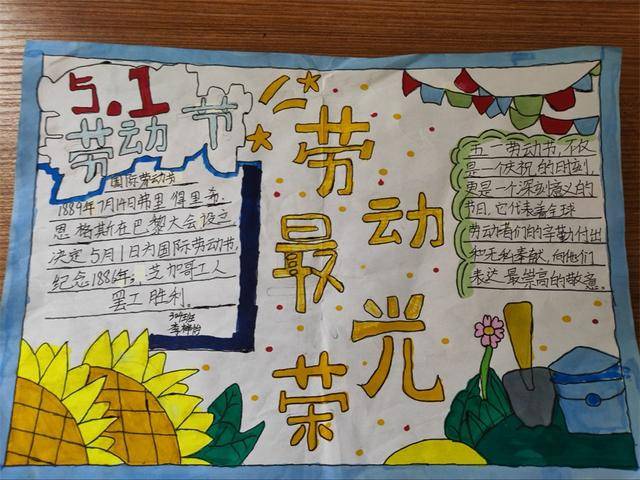 5.1
劳动节
国际劳动节
1889年7月14日弗里得里希.
恩格斯在巴黎大会设立
决定5月1日为国际劳动节,
纪念1886年,芝加哥工人
罢工胜利。
劳动
最光
荣
五一劳动节,不仅
是一个庆祝的时刻,
更是一个深刻意义的
节日,它代表着全球
劳动者们的辛勤付出
和无私奉献,向他们
表达最崇高的敬意。